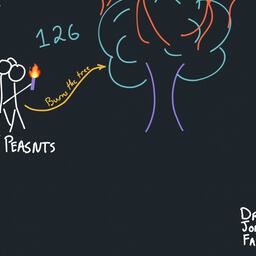 126
Burns the tree
PEASNTS
DR
JO
FA